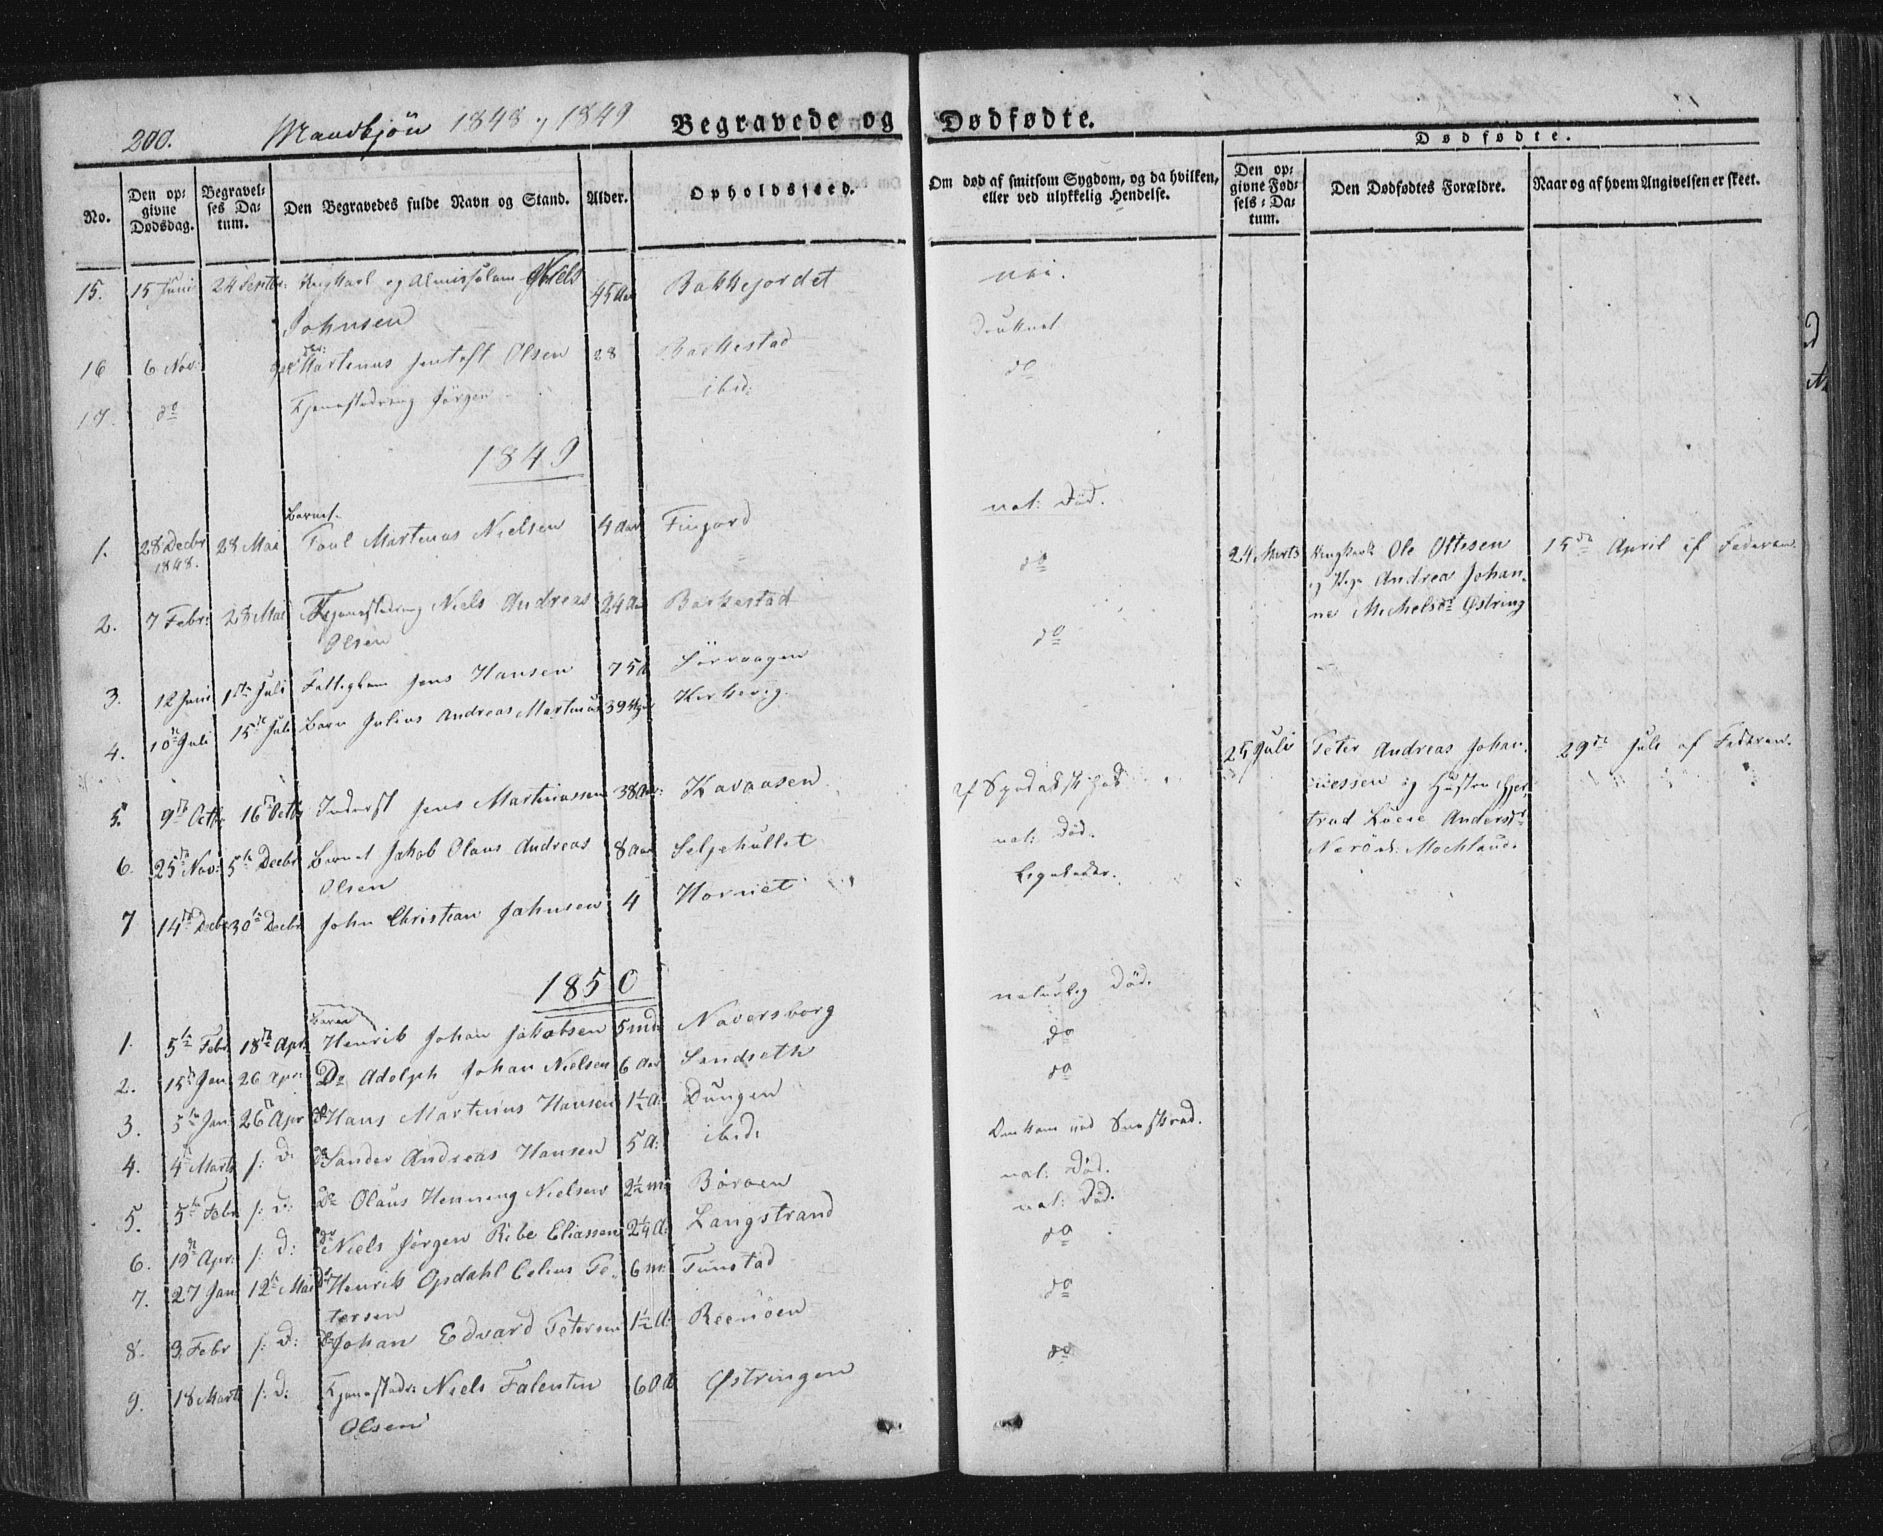 200. Mandkjön 1848 og 1849 Begravede og Dødfødte.
Dødfødte.
No. Den opgivne Dødsdag. Begravelses Datum. Den Begravedes fulde Navn og Stand. Alder. Opholdssted. Om død af smitsom Sygdom, og da hvilken, eller ved ulykkelig Hendelse. Den opgivne Fødsels-Datum. Den Dødfødtes Forældre. Naar og af hvem Angivelsen er skeet.
15. 15 Juni 24 Septbr: Ungkarl og Almisselem Niels 45 Aar Bakkejordet nei.
Johnsen
16 6 Nov: Martenus Jentoft Olsen 28 Barkestad druknet
17. do Tjenestedreng Jørgen ibid: do
1849
Barnet
1. 28 Decbr 28 Mai Poul Martenus Nielsen 4 Aar Fingord nat: Död.
1848.
24 Marts Ungkarl Ole Ottesen 15de April af Faderen.
og Pige Andrea Johan-
ne Michelsdr Østring
2. 7 Febr: 28 Mai Tjenestedreng Niels Andreas 24 Aar Barkestad do
Olsen
3. 12 Juni 1ste Juli Fattiglem Jens Hansen 75 A Sörvaagen do
4. 10de Juli 15de Juli Barn Julius Andreas Martinus 39 Uger Kirkevig.
25 Juli Peter Andreas Johan- 29de Juli af Faderen.
nessen og Hustru Gjer-
trud Lovise Andersdr
5. 9de Octbr 16de Octbr Inderst Jens Martinussen 38 Aar: Kavaasen af Spedalskhed
6. 25de Nov: 5te Decbr Barnet Jakob Olaus Andreas 8 Aar Seljehullet nat: Död.
Olsen
7 14de Decbr 30te Decbr John Christian Jahnsen 4 Hornet
1850
Barne
1. 5te Febr 18de Apr. Henrik Johan Jakobsen 5 md Naversborg naturlig Död.
2. 15de Jan 26 Apr Do Adolph Johan Nielsen 6 Aar Sandseth do
3. 5te Jan 26de Apr do Hans Martinius Hansen 1½ A: Dungen do
4. 4de Marts s: D: do Sander Andreas Hansen 5 A: ibid: Omkom ved Sneeskred.
5. 5te Febr s: d: Do Olaus Henning Nielsen 2½ m Böröen nat: Död.
6. 19de Apr: s: d: do Niels Jørgen Ribe Eliassen 2¼ A: Langstrand nat: Död.
7. 27 Jan: 12te Mai do Henrik Opdahl Celius Pe- 6 m: Tunstad do
tersen
8. 3. Febr s: D: do Johan Edvard Petersen 1½ A: Reenöen do
9. 18 Marts s: d: Tjenestedr: Niels Falentin 60 A Østringen do
Olsen